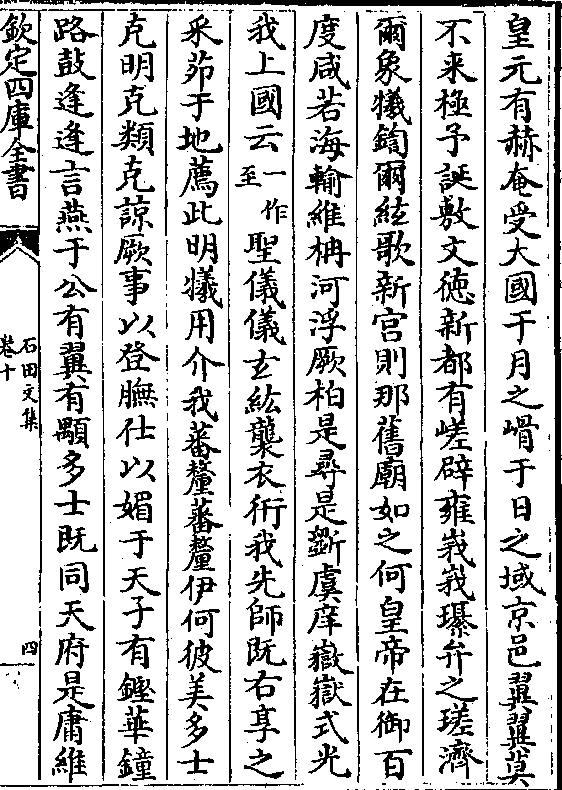 皇元有赫奄受大國于月之𡺾于日之域京邑翼翼莫
不来極予誕敷文徳新都有嵯辟雍峩峩璂弁之瑳濟
爾象犧鍧爾絃歌新宫則那舊廟如之何皇帝在御百
度咸若海輸維枏河浮厥柏是尋是斲虞庠嶽嶽式光
我上國云一作至聖儀儀𤣥紘襲衣衎我先師既右享之
采茆于地薦此明犧用介我蕃釐蕃釐伊何彼美多士
克明克類克諒厥事以登膴仕以媚于天子有鏗華鐘
路鼓逢逢言燕于公有翼有顒多士既同天府是庸維
欽定四庫全書
石田文集
卷十
四